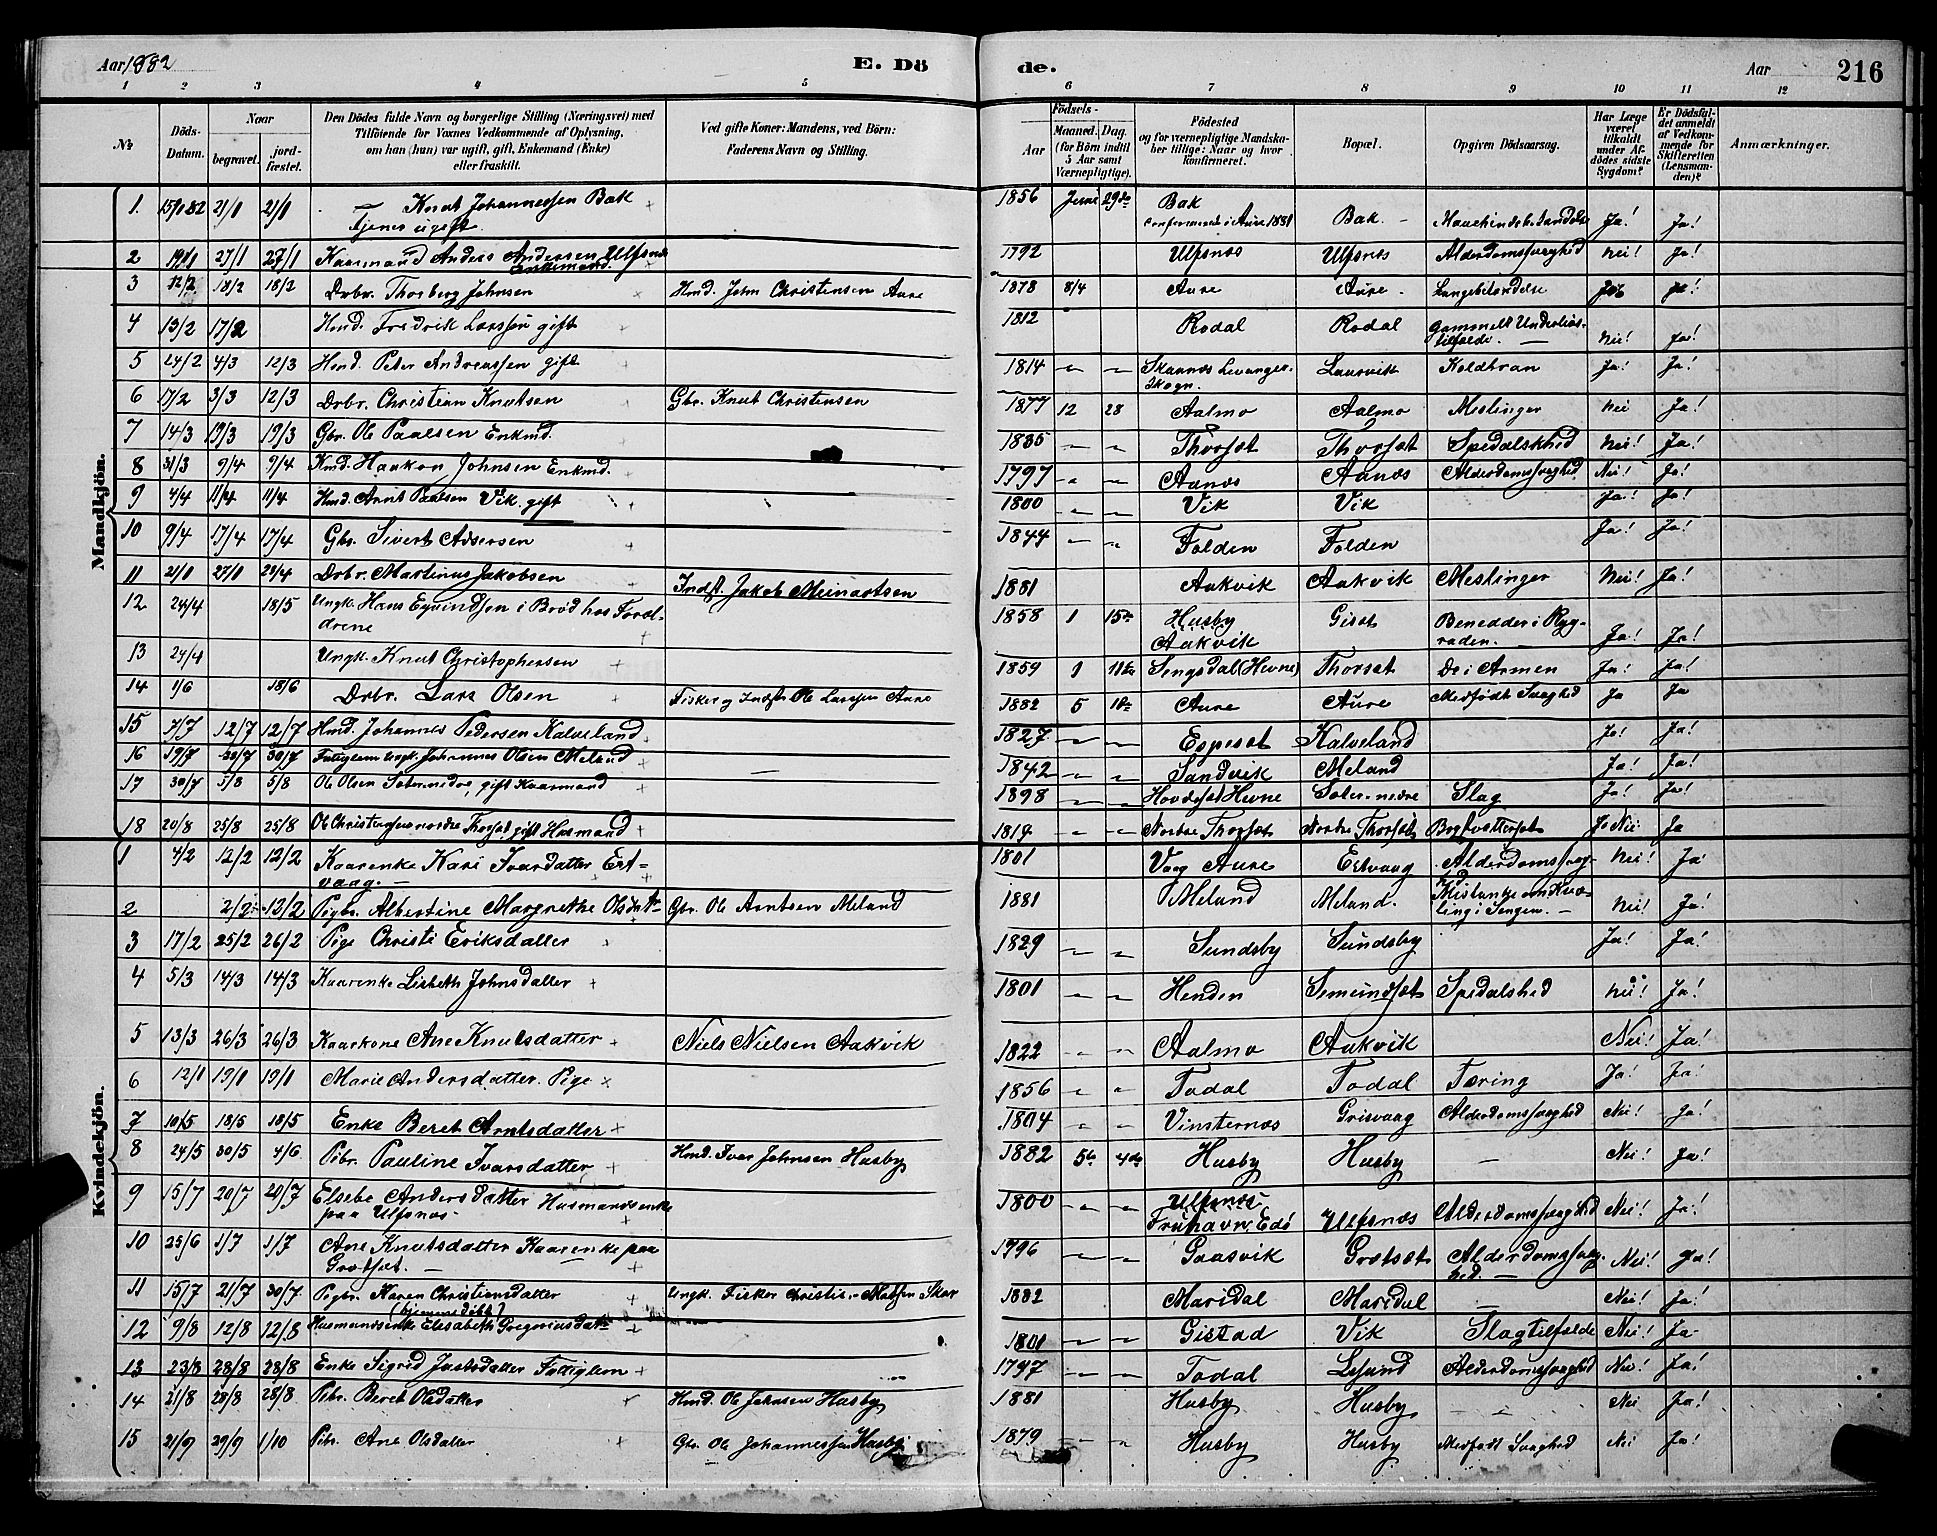 Aar 1882 E. Dö de. Aar 216
1 2 3 4 5 6 7 8 9 10 11 12
No Döds-Datum. Naar begravet. jordfæstet. Den Dödes fulde Navn og borgerlige Stilling (Næringsvei) med Tilföiende for Voxnes Vedkommende af Oplysning, om han (hun) var ugift, gift, Enkemand (Enke) eller fraskilt. Ved gifte Koner: Mandens, ved Börn: Faderens Navn og Stilling. Födsels- Aar Maaned. Dag. (for Börn indtil 5 Aar samt Værnepligtige). Födested og for værnepligtige Mandskaber tillige: Naar og hvor konfirmeret. Bopæl. Opgiven Dödsaarsag. Har Læge været tilkaldt under Afdödes sidste Sygdom? Er Dödsfaldet anmeldt af Vedkommende for Skifteretten (Lensmanden)? Anmærkninger.
Mandkjön.
1. 15/1 82 21/1 21/1 Knut Johannessen Bak 1856 Juni 29de Bak Bak Ja! Ja!
Tjener ugift Confirmeret i Aure 1881
2 19/1 27/1 27/1 Kaarmand Anders Andersen Ulfsnæs 1792 Ulfsnæs Ulfsnæs Alderdomssvaghed Nei! Ja!
Enkemand.
3 12/2 18/2 18/2 Drbr. Thorberg Johnsen Hmd. John Christensen Aure 1878 8/4 Aure Aure Lungebetændelse Ja!
4 13/2 17/2 Hmd. Fredrik Larssen gift 1812 Rodal Rodal Gammelt Underlivstilfælde. Nei! Ja!
5 24/2 4/3 12/3 Hmd. Peter Andreassen gift 1814 Skaanes Levanger. Skogn. Laurvik Koldbran Ja! Ja!
6 17/2 3/3 12/3 Drbr. Christian Knutsen Gbr. Knut Christensen 1877 12 28 Aalmo Aalmo Meslinger Nei Ja!
7 14/3 19/3 19/3 Gbr. Ole Paalsen Enkmd. 1835 Thorsæt Thorsæt Spedalskhed Nei! Ja!
8 31/3 9/4 9/4 Kmd. Haakon Johnsen Enkmd. 1797 Aanæs Aanæs Alderdomssvaghed Nei! Ja!
9 4/4 11/4 11/4 Hmd. Arnt Paalsen Vik, gift 1800 Vik Vik Ja! Ja!
10 9/4 17/4 17/4 Gbr. Sivert Assersen 1844 Folden Folden Ja! Ja!
11 21/1 27/1 23/4 Drbr. Martinus Jakobsen Indst. Jakob Meinartsen 1881 Aakvik Aakvik Meslinger Nei! Ja!
12 24/4 18/5 Ungk. Hans Eyvindsen i Brød hos Forældrene 1858 1 15de Husby Aakvik Gisæt Benedder i Rygraden. Ja! Ja!
13 24/4 Ungk. Knut Christophersen 1859 1 11te Singsdal (Hevne) Thorsæt Do i Armen Ja! Ja!
14 1/6 18/6 Drbr. Lars Olsen Fisker og Indst. Ole Larssen Aure 1882 5 18de Aure Aure Medfødt Svaghed Ja Ja
15 7/7 12/7 12/7 Hmd. Johannes Pedersen Kalveland 1827 Espeset Kalveland Ja! Ja!
16 19/7 30/7 30/7 Fattiglem Ungk. Johannes Olsen Meland 1842 Sandvik Meland Ja! Ja!
17 30/7 5/8 5/8 Ole Olsen, gift Kaarmand 1898 Hovdesæt Hevne Slag Ja! Ja!
18 20/8 25/8 25/8 Ole Christensen nordre Thorsæt, gift Husmand 1814 Nordre Thorsæt Nordre Thorsæt Brystvattersot Nei Ja
Kvindekjön.
1 4/2 12/2 12/2 Kaarenke Kari Ivarsdatter Ertvaag. 1801 Vaag Aure Ertvaag Alderdomssvaghed Nei! Ja
2 13/2 Pigbr. Albertine Margrethe Olsdatr Gbr. Ole Arntsen Meland 1881 Meland Meland. Mistanke om Kvæling i Sengen. Nei! Ja!
3 17/2 25/2 26/2 Pige Christi Eriksdatter 1829 Sundsby Sundsby Ja! Ja!
4 5/3 14/3 14/3 Kaarenke Lisbeth Johnsdatter 1801 Henden Semundsæt Spedalshed Nei! Ja!
5 13/3 26/3 26/3 Kaarkone Ane Knutsdatter Niels Nielsen Aakvik 1822 Aalmo Aakvik Nei! Ja!
6 12/1 19/1 19/1 Marie Andersdatter. Pige 1856 Todal Todal Tæring Ja! Ja!
7 10/5 18/5 18/5 Enke Beret Arntsdatter 1804 Vinsternæs Grisvaag Alderdomssvaghed Nei! Ja!
8 24/5 30/5 4/6 Pibr. Pauline Ivarsdatter Hmd. Ivar Johnsen Husby 1882 5te 4de Husby Husby Nei! Ja!
9 15/7 20/7 20/7 Elsebe Andersdatter Husmandsenke paa Ulfsnæs 1800 Ulfsnæs Fruhavn Edö Ulfsnæs Alderdomssvaghed Nei! Ja!
10 25/6 1/7 1/7 Ane Knutsdatter Kaarenke paa Grøtset. 1796 Gaasvik Grøtset Alderdomssvaghed. Nei! Ja!
11 15/7 21/7 30/7 Pigbr. Karen Christiansdatter Ungk. Fisker Skar 1882 Maridal Maridal Nei! Ja!
(hjemmedøbt)
12 9/8 12/8 12/8 Husmandsenke Elisabeth Gregoriusdatr 1801 Gistad Vik Slagtilfælde Nei! Ja
13 23/8 28/8 28/8 Enke Sigrid Justsdatter Fattiglem 1797 Todal Lesund Alderdomssvaghed Nei! Ja!
14 21/8 28/8 28/8 Pibr. Beret Olsdatter Hmd. Ole Johnsen Husby 1881 Husby Husby Nei Ja!
15 21/9 29/9 1/10 Pibr. Ane Olsdatter Gbr. Ole Johannessen Husby 1879 Husby Husby Medfødt Svaghed Nei Ja!